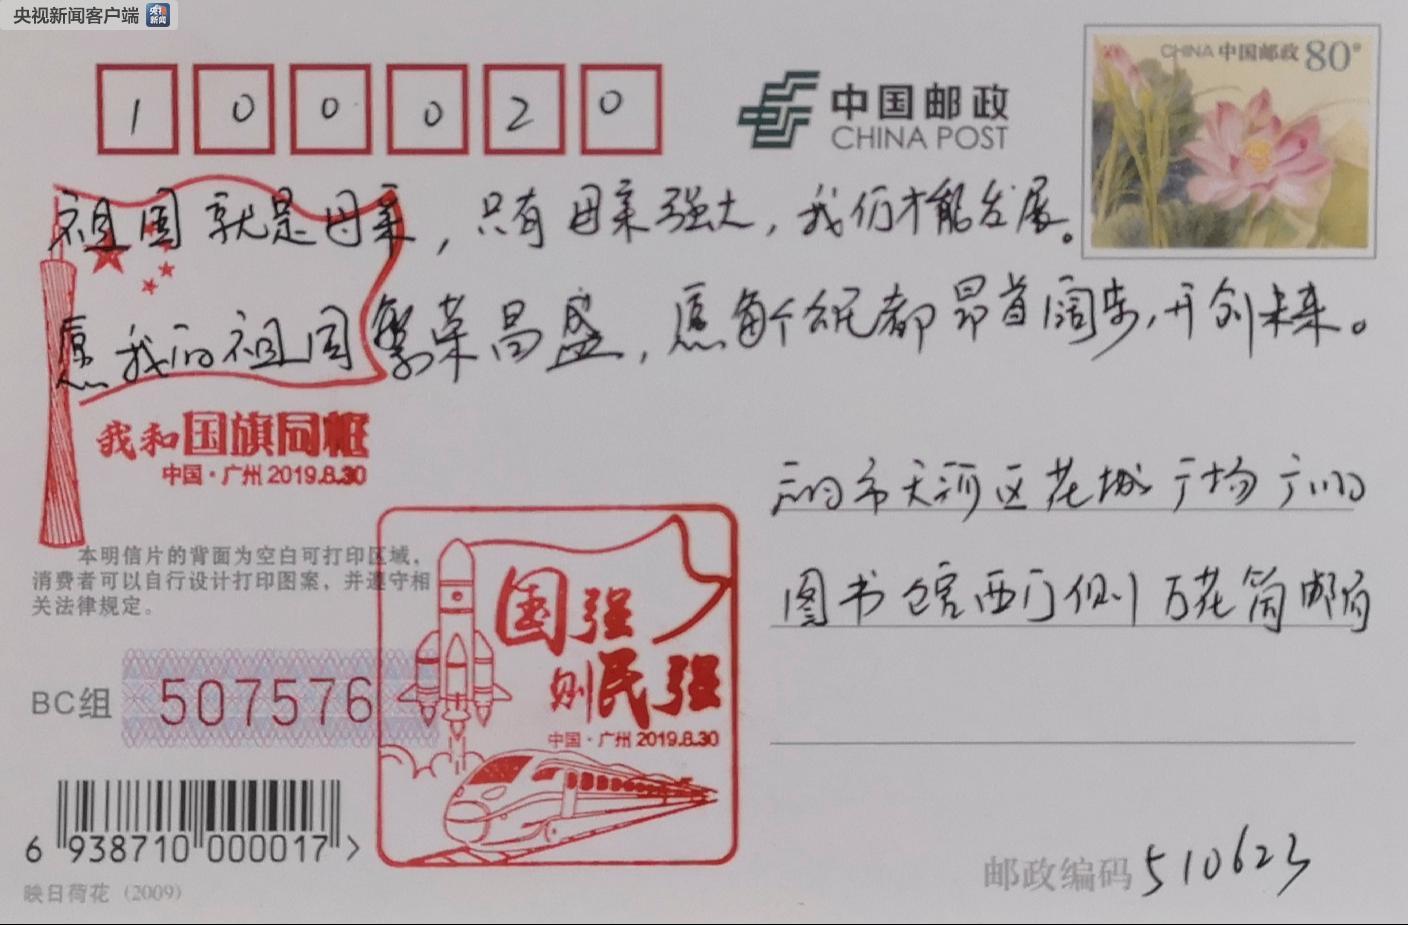 央视新闻客户端
央视新闻
CHINA 中国邮政 80分
1 0 0 0 2 0
中国邮政
CHINA POST
祖国就是母亲，只有母亲强大，我们才能发展。
愿我们祖国繁荣昌盛，愿每个的都昂首阔步，开创未来。
我和国旗同框
中国·广州 2019.8.30
广州市天河区花城广场广州
图书馆西门侧万花筒邮局
本明信片的背面为空白可打印区域，
消费者可以自行设计打印图案，并遵守相
关法律规定。
国强
则民强
中国·广州 2019.8.30
BC组 507576
6 938710 000017 >
邮政编码 510623
映日荷花 (2009)